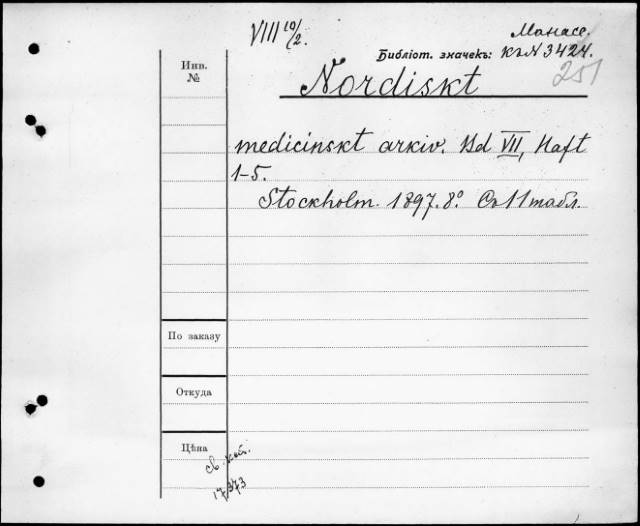 VIII 10/2.
Манасе.
Библіот. значекъ: къ N 3424.
251
Инв.
№
Nordiskt
medicinskt arkiv. Bd VII, Haft
1-5.
Stockholm. 1897. 8º Съ 11 табл.
По заказу
Откуда
Цѣна
17373